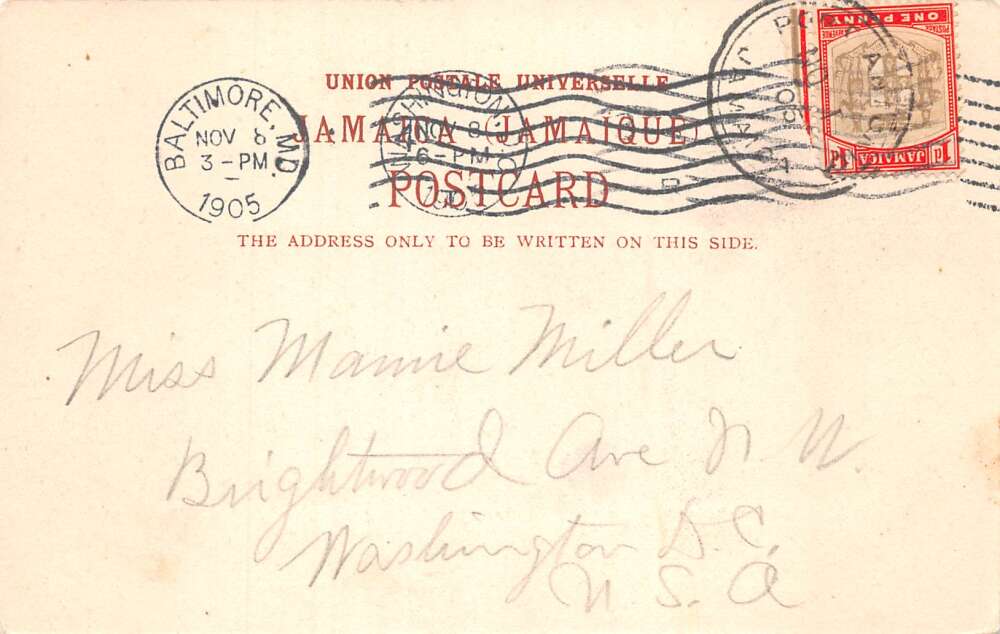 UNION POSTALE UNIVERSELLE
JAMAICA (JAMAIQUE)
POSTCARD
THE ADDRESS ONLY TO BE WRITTEN ON THIS SIDE.
BALTIMORE, MD.
NOV 8
3-PM
1905
WASHINGTON, D.C.
NOV 8
6-PM
PORT ANTONIO
JAMAICA
ONE PENNY
POSTAGE & REVENUE
1d JAMAICA 1d
Miss Mamie Miller
Brightwood Ave N. W.
Washington D.C.
U. S. A